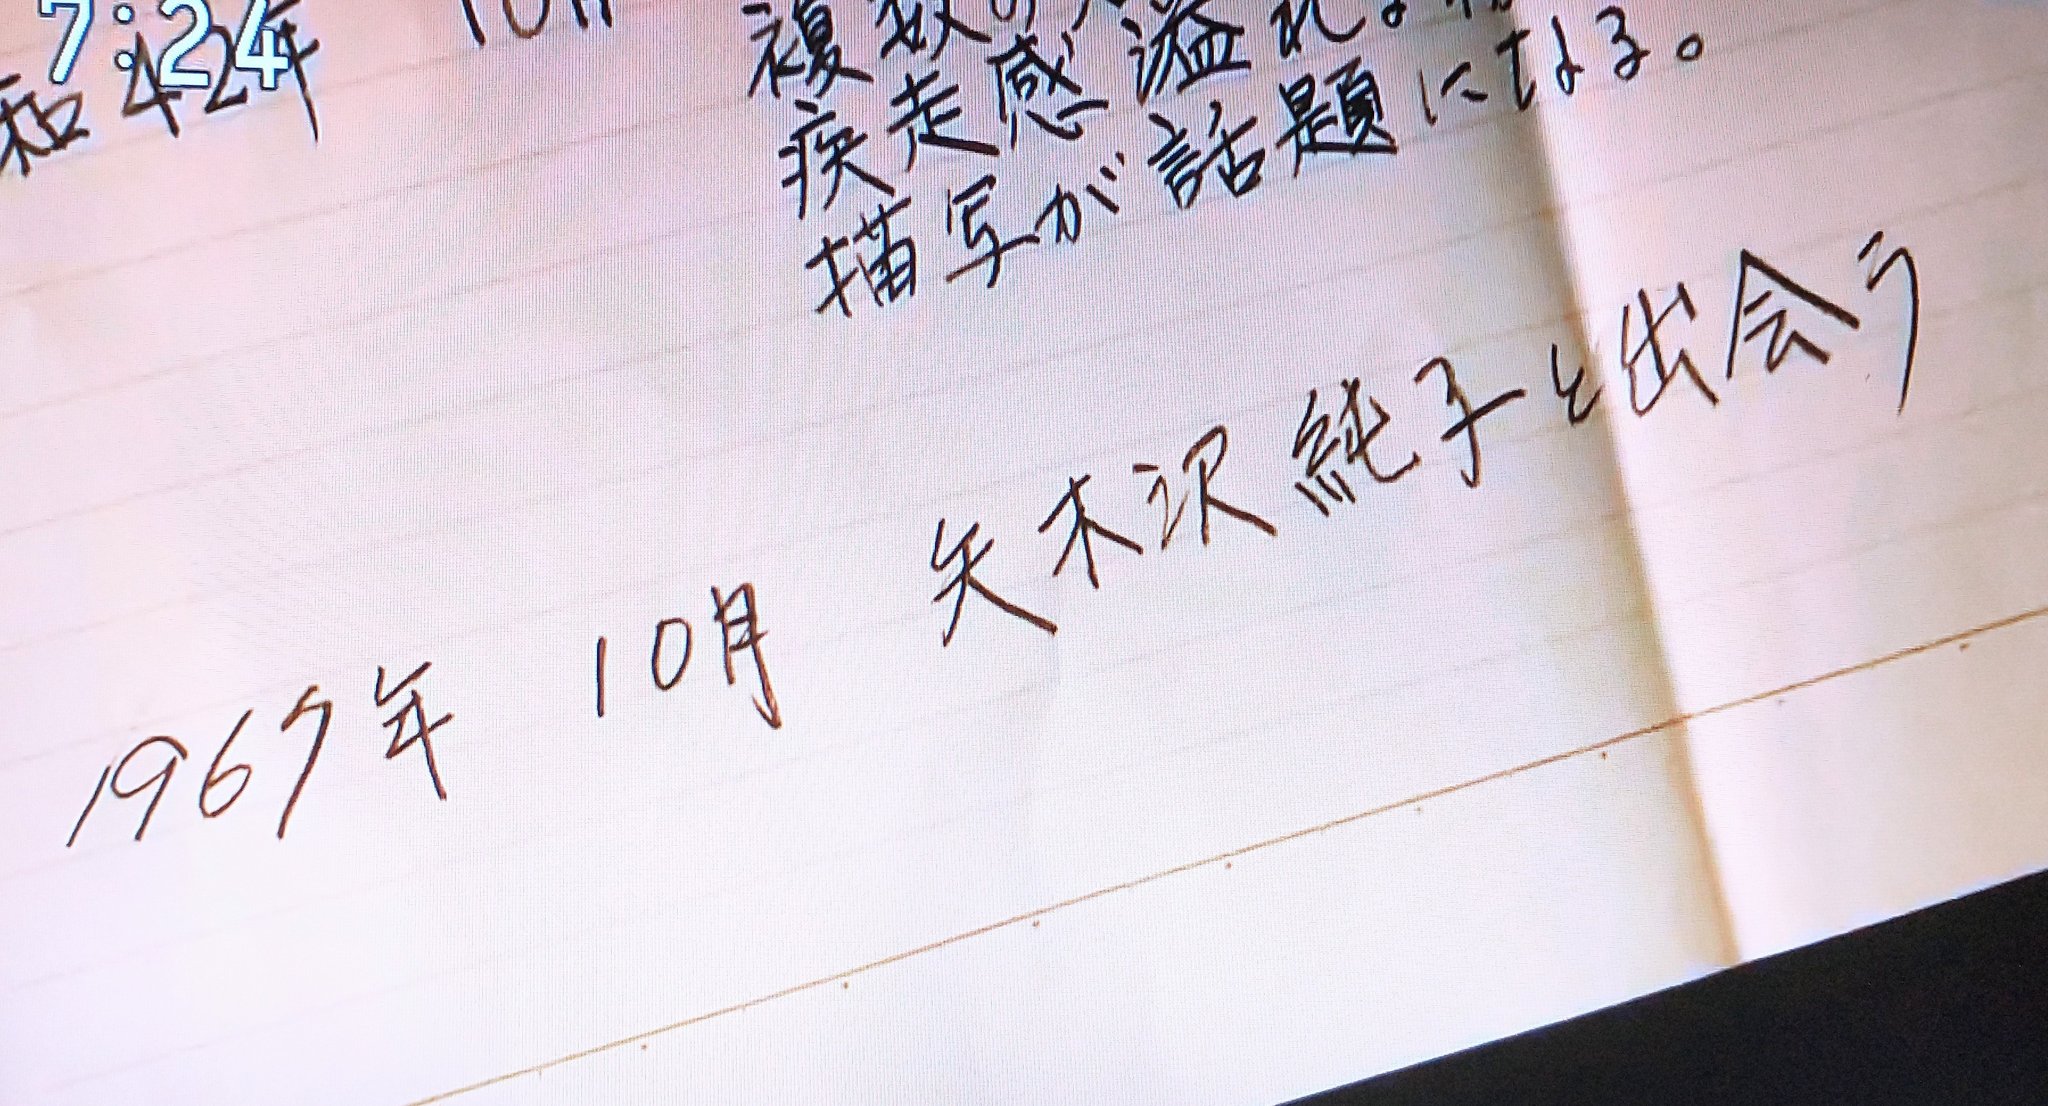 7:24
和42年 10月
複数の
疾走感溢れ
描写が話題になる。
1967年 10月 矢木沢純子と出会う